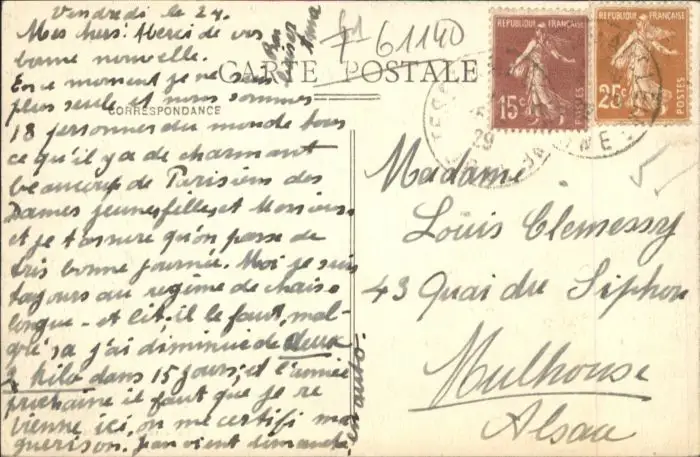 Vendredi le 24.
Mes chers. Merci de vos
bonne nouvelle.
En ce moment je ne suis
plus seule et nous sommes
18 personnes du monde tous
ce qu'il y a de charmant
beaucoup de Parisiens des
Dames jeunes filles et Messieurs
et je t'assure qu'on passe de
tris bonne journée. Moi je suis
toujours au régime de chaise
longue - et lit. il le faut, mal-
gré sa j'ai diminuée de deux
2 kilo dans 15 jours; et l'année
prochaine il faut que je re
vienne ici, on me certifi ma
guerison. Jean vient dimanche
en auto.
baiser
61140
CARTE POSTALE
CORRESPONDANCE
REPUBLIQUE FRANÇAISE
15c
POSTES
REPUBLIQUE FRANÇAISE
25c
POSTES
29
Madame
Louis Clemessy
43 Quai du Siphon
Mulhouse
Alsace